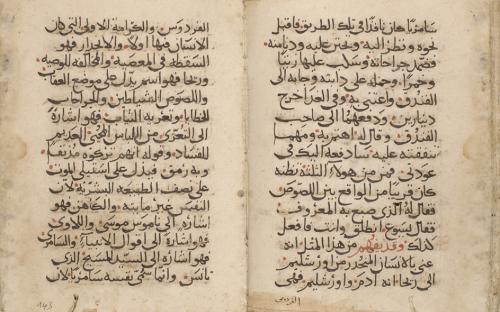 سامريًا كان نافذًا في تلك الطريق فاقبل
نحوه ونظر اليه وتحنن عليه ودنا منه
فضمد جراحاته وسكب عليها زيتا
وخمرًا وحمله على دابته وجابه الى
الفندق واعتني به وفي الغد اخرج
دينارين ودفعهما الى صاحب
الفندق وقال له اهتم به ومهما
تنفقته عليه سادفعه اليك في
عودتي فمن من هولاء الثلثة تظنه
كان قريبًا من الواقع بين اللصوص
فقال له الذي صنع به المعروف
فقال يسوع انطلق وانت فافعل
كذلك وقد يفهم من هذا المثل انه
عني بالانسان المنحدر من اورشليم
الى ريحا انه ادم واورشليم فهي
الفردوس
الفردوس والكرامة الاولى التي كان
الانسان فيها اولا والانحدار فهو
السقطة في المعصية والمخالفة للوصيه
وريحا فهو اسم يدل على موضع العقاب
واللصوص الشياطين والجراحات
الخطايا وتعرية الثياب فهو اشارة
الى التعري من اللباس العديم
للفساد وقوله انهم تركوه مدنفًا
وبه رمق فيدل على استيلا الموت
على نصف الطبيعه البشرية لان
النفس غير مايته والكاهن فهو
اشارة الى ناموس موسى واللاوي
فهو اشارة الى اقوال الانبياء والسامري
فهو اشارة الى السيد المسيح الذي
تانس وانما سمى نفسه سامريا لان
143